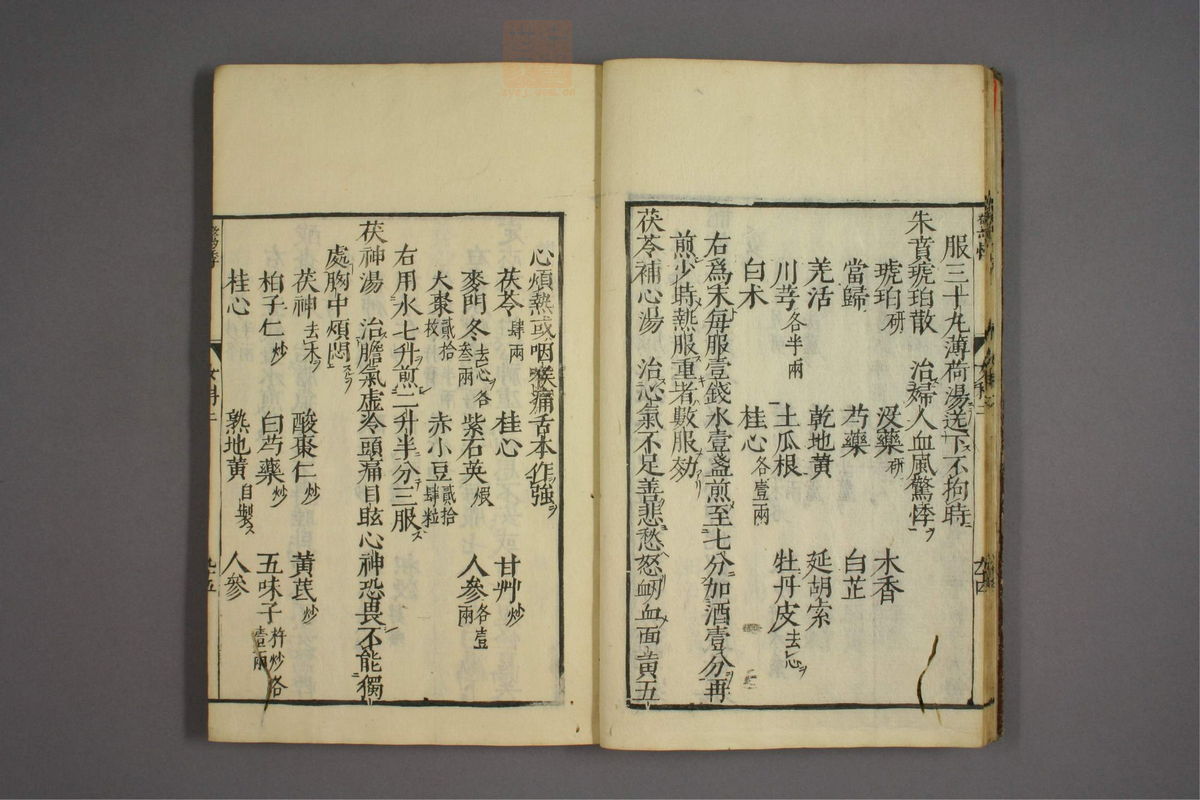 服三十丸薄荷湯送下不拘時
朱賁琥珀散　治婦人血風驚悸ヲ
琥珀研　沒藥研　木香
當歸　芍藥　白芷
羌活　乾地黃　延胡索
川芎各半兩　土瓜根　牡丹皮去心ヲ
白术　桂心各壹兩
右爲末每服壹錢水壹盞煎至七分加酒壹分再
煎少時熱服重者數服効
茯苓補心湯　治心氣不足善悲愁怒衂血面黃五
心煩熱或咽喉痛舌本作強
茯苓肆兩　桂心　甘艸炒
麥門冬去心ヲ各叁兩　紫石英煆　人參各壹兩
大棗貳拾枚　赤小豆貳拾肆粒
右用水七升煎二升半分三服
茯神湯　治膽氣虚冷頭痛目眩心神恐畏不能獨
處胸中煩悶
茯神去木ヲ　酸棗仁炒　黃芪炒
柏子仁炒　白芍藥炒　五味子杵炒各壹兩
桂心　熟地黃自製ス　人參
女科二
九十五